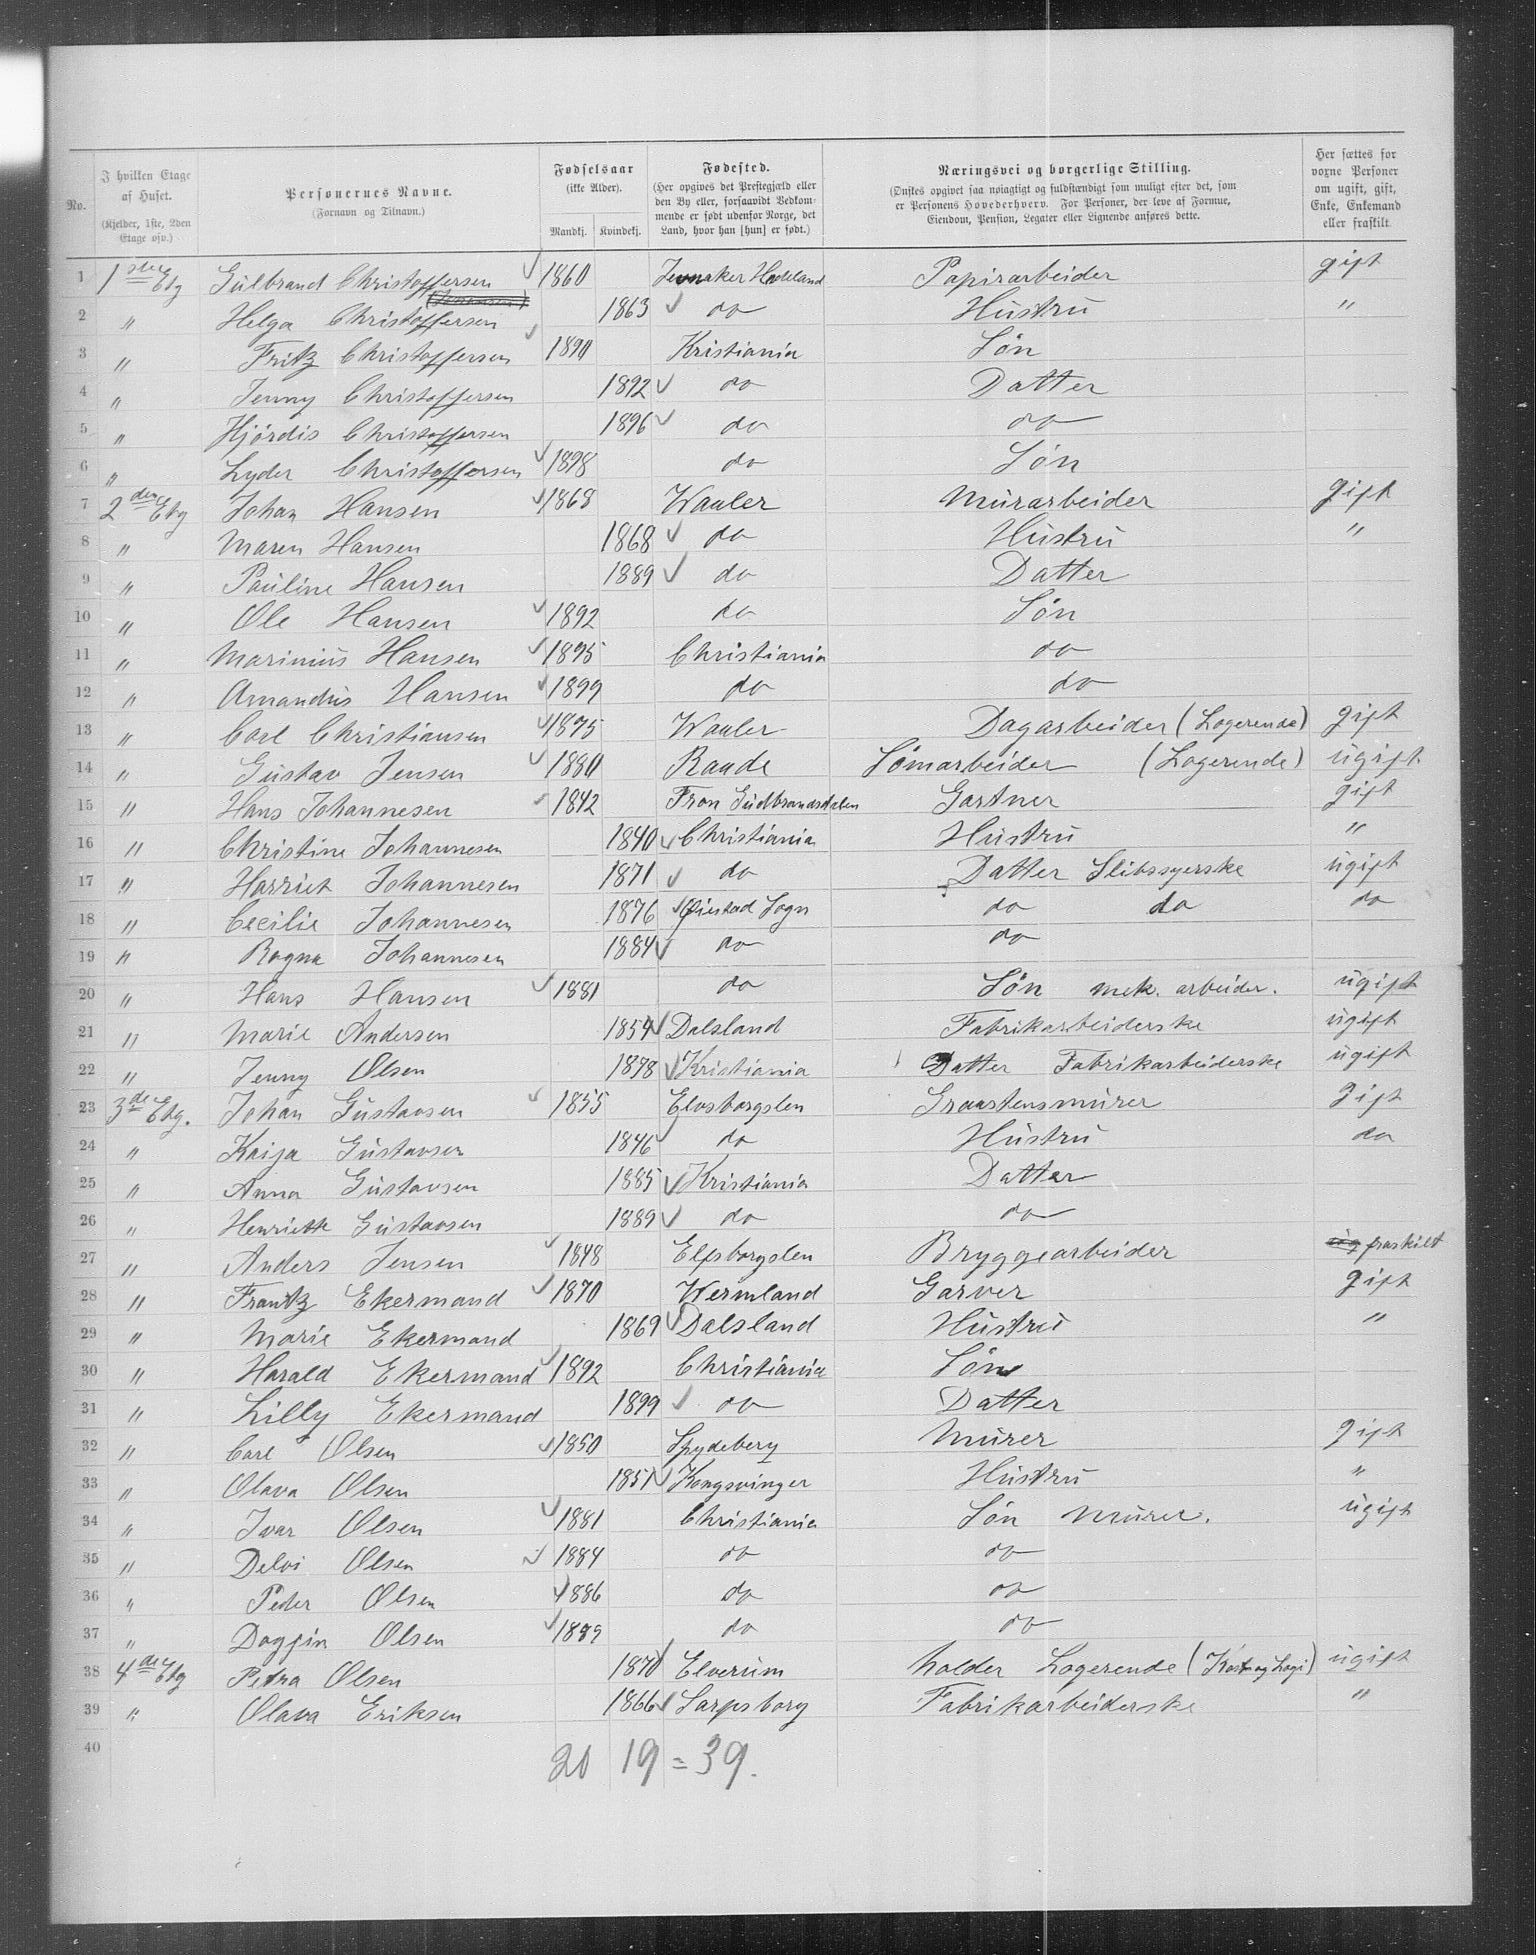 No.
I hvilken Etage af Huset. (Kjelder, 1ste, 2den Etage osv.)
Personernes Navne. (Fornavn og Tilnavn.)
Fødselsaar (ikke Alder). Mandkj. Kvindekj.
Fødested. (Her opgives det Prestegjæld eller den By eller, forsaavidt Vedkommende er født udenfor Norge, det Land, hvor han [hun] er født.)
Næringsvei og borgerlige Stilling. (Ønskes opgivet saa nøiagtigt og fuldstændigt som muligt efter det, som er Personens Hovederhverv. For Personer, der leve af Formue, Eiendom, Pension, Legater eller Lignende anføres dette.
Her sættes for voxne Personer om ugift, gift, Enke, Enkemand eller fraskilt.
1 1ste Etg Gulbrand Christoffersen 1860 Jevnaker Hadeland Papirarbeider gift
2 " Helga Christoffersen 1863 do Hustru "
3 " Fritz Christoffersen 1890 Kristiania Søn
4 " Jenny Christoffersen 1892 do Datter
5 " Hjørdis Christoffersen 1896 do do
6 " Lyder Christoffersen 1898 do Søn
7 2den Etg Johan Hansen 1868 Waaler Murarbeider gift
8 " Maren Hansen 1868 do Hustru "
9 " Pauline Hansen 1889 do Datter
10 " Ole Hansen 1892 do Søn
11 " Marinius Hansen 1895 Christiania do
12 " Amandus Hansen 1899 do do
13 " Carl Christiansen 1875 Waaler Dagarbeider (Logerende) gift
14 " Gustav Jensen 1880 Raade Sømarbeider (Logerende) ugift
15 " Hans Johannesen 1842 Fron Gudbrandsdalen Gartner gift
16 " Christine Johannesen 1840 Christiania Hustru "
17 " Harriet Johannesen 1871 do Datter Slibssyerske ugift
18 " Cecilie Johannesen 1876 Sogn do do do
19 " Ragna Johannesen 1884 do do
20 " Hans Hansen 1881 do Søn mek. arbeider. ugift
21 " Marie Andersen 1854 Dalsland Fabrikarbeiderske ugift
22 " Jenny Olsen 1878 Kristiania Datter Fabrikarbeiderske ugift
23 3de Etg. Johan Gustavsen 1855 Elvsborgslen Graastensmurer gift
24 " Kaija Gustavsen 1846 do Hustru do
25 " Anna Gustavsen 1885 Kristiania Datter
26 " Henriette Gustavsen 1889 do do
27 " Anders Jensen 1848 Elfsborgslen Bryggearbeider fraskilt
28 " Frantz Ekermand 1870 Wermland Garver gift
29 " Marie Ekermand 1869 Dalsland Hustru "
30 " Harald Ekermand 1892 Christiania Søn
31 " Lilly Ekermand 1899 do Datter
32 " Carl Olsen 1850 Spydeberg Murer gift
33 " Olava Olsen 1851 Kongsvinger Hustru "
34 " Ivar Olsen 1881 Christiania Søn Murer. ugift
35 " Delvi Olsen 1884 do do
36 " Peder Olsen 1886 do do
37 " Dagfin Olsen 1889 do do
38 4de Etg Petra Olsen 1870 Elverum holder Logerende (Kost og Logi) ugift
39 " Olava Eriksen 1866 Sarpsborg Fabrikarbeiderske "
40
20 19 = 39.